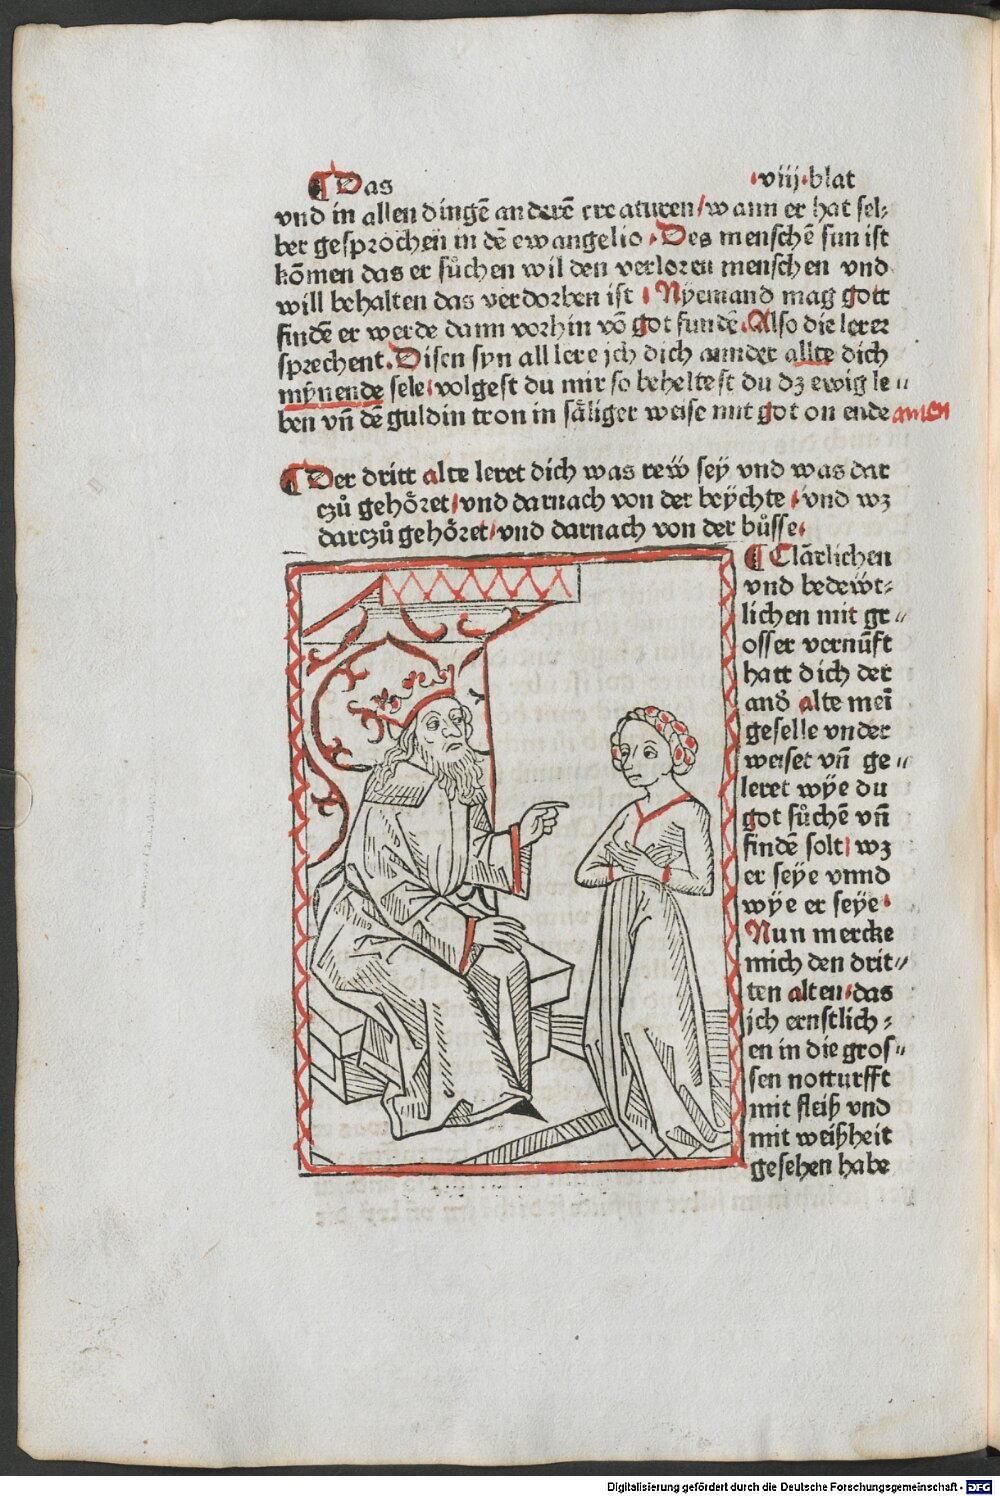 Das ·viij·blat
vnd in allen dingē anderē creaturen/wann er hat sel⸗
ber gesprochen in dē ewangelio·Des menschē sun ist
kōmen das er sůchen wil den verloren menschen vnd
will behalten das verdorben ist·Nyemand mag gott
findē er werde dann vorhin vō got fundē·Also die lerer
sprechent·Disen syn all lere jch dich ander allte dich
mÿnende sele·volgest du mir so beheltest du dz ewig le⸗
ben vn̄ dē guldin tron in sāliger weise mit got on ende amen
Der dritt alte leret dich was rew̋ sey vnd was dar
czů gehőret/vnd darnach von der beÿchte·vnd wz
darczů gehőret/vnd darnach von der bůsse·
Clārlichen
vnd bedew̋t⸗
lichen mit gr⸗
osser vernūft
hatt dich der
and̓ alte meī
geselle vnder
weiset vn̄ ge⸗
leret wÿe du
got sůchē vn̄
findē solt/wz
er seÿe vnnd
wÿe er seÿe·
Nun mercke
mich den drit⸗
ten alten·das
jch ernstlich⸗
en in die gros⸗
sen notturfft
mit fleiß vnd
mit weißheit
gesehen habe
Digitalisierung gefördert durch die Deutsche Forschungsgemeinschaft - DFG